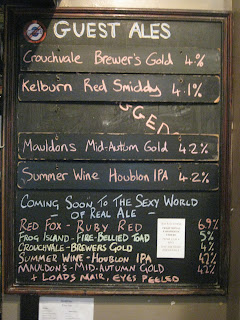 GUEST ALES
CROUCHVALE BREWER'S GOLD 4%
KELBURN RED SMIDDY 4.1%
GGED
MAULDONS MID-AUTUM GOLD 4.2%
SUMMER WINE HOUBLON IPA 4.2%
COMING SOON TO THE SEXY WORLD
- OF REAL ALE -
RED FOX - RUBY RED 6.9%
FROG ISLAND - FIRE-BELLIED TOAD 5%
CROUCHVALE - BREWERS GOLD 4%
SUMMER WINE - HOUBLON IPA 4.2%
MAULDON'S - MID-AUTUMN GOLD 4.2%
+ LOADS MAIR, EYES PEELED